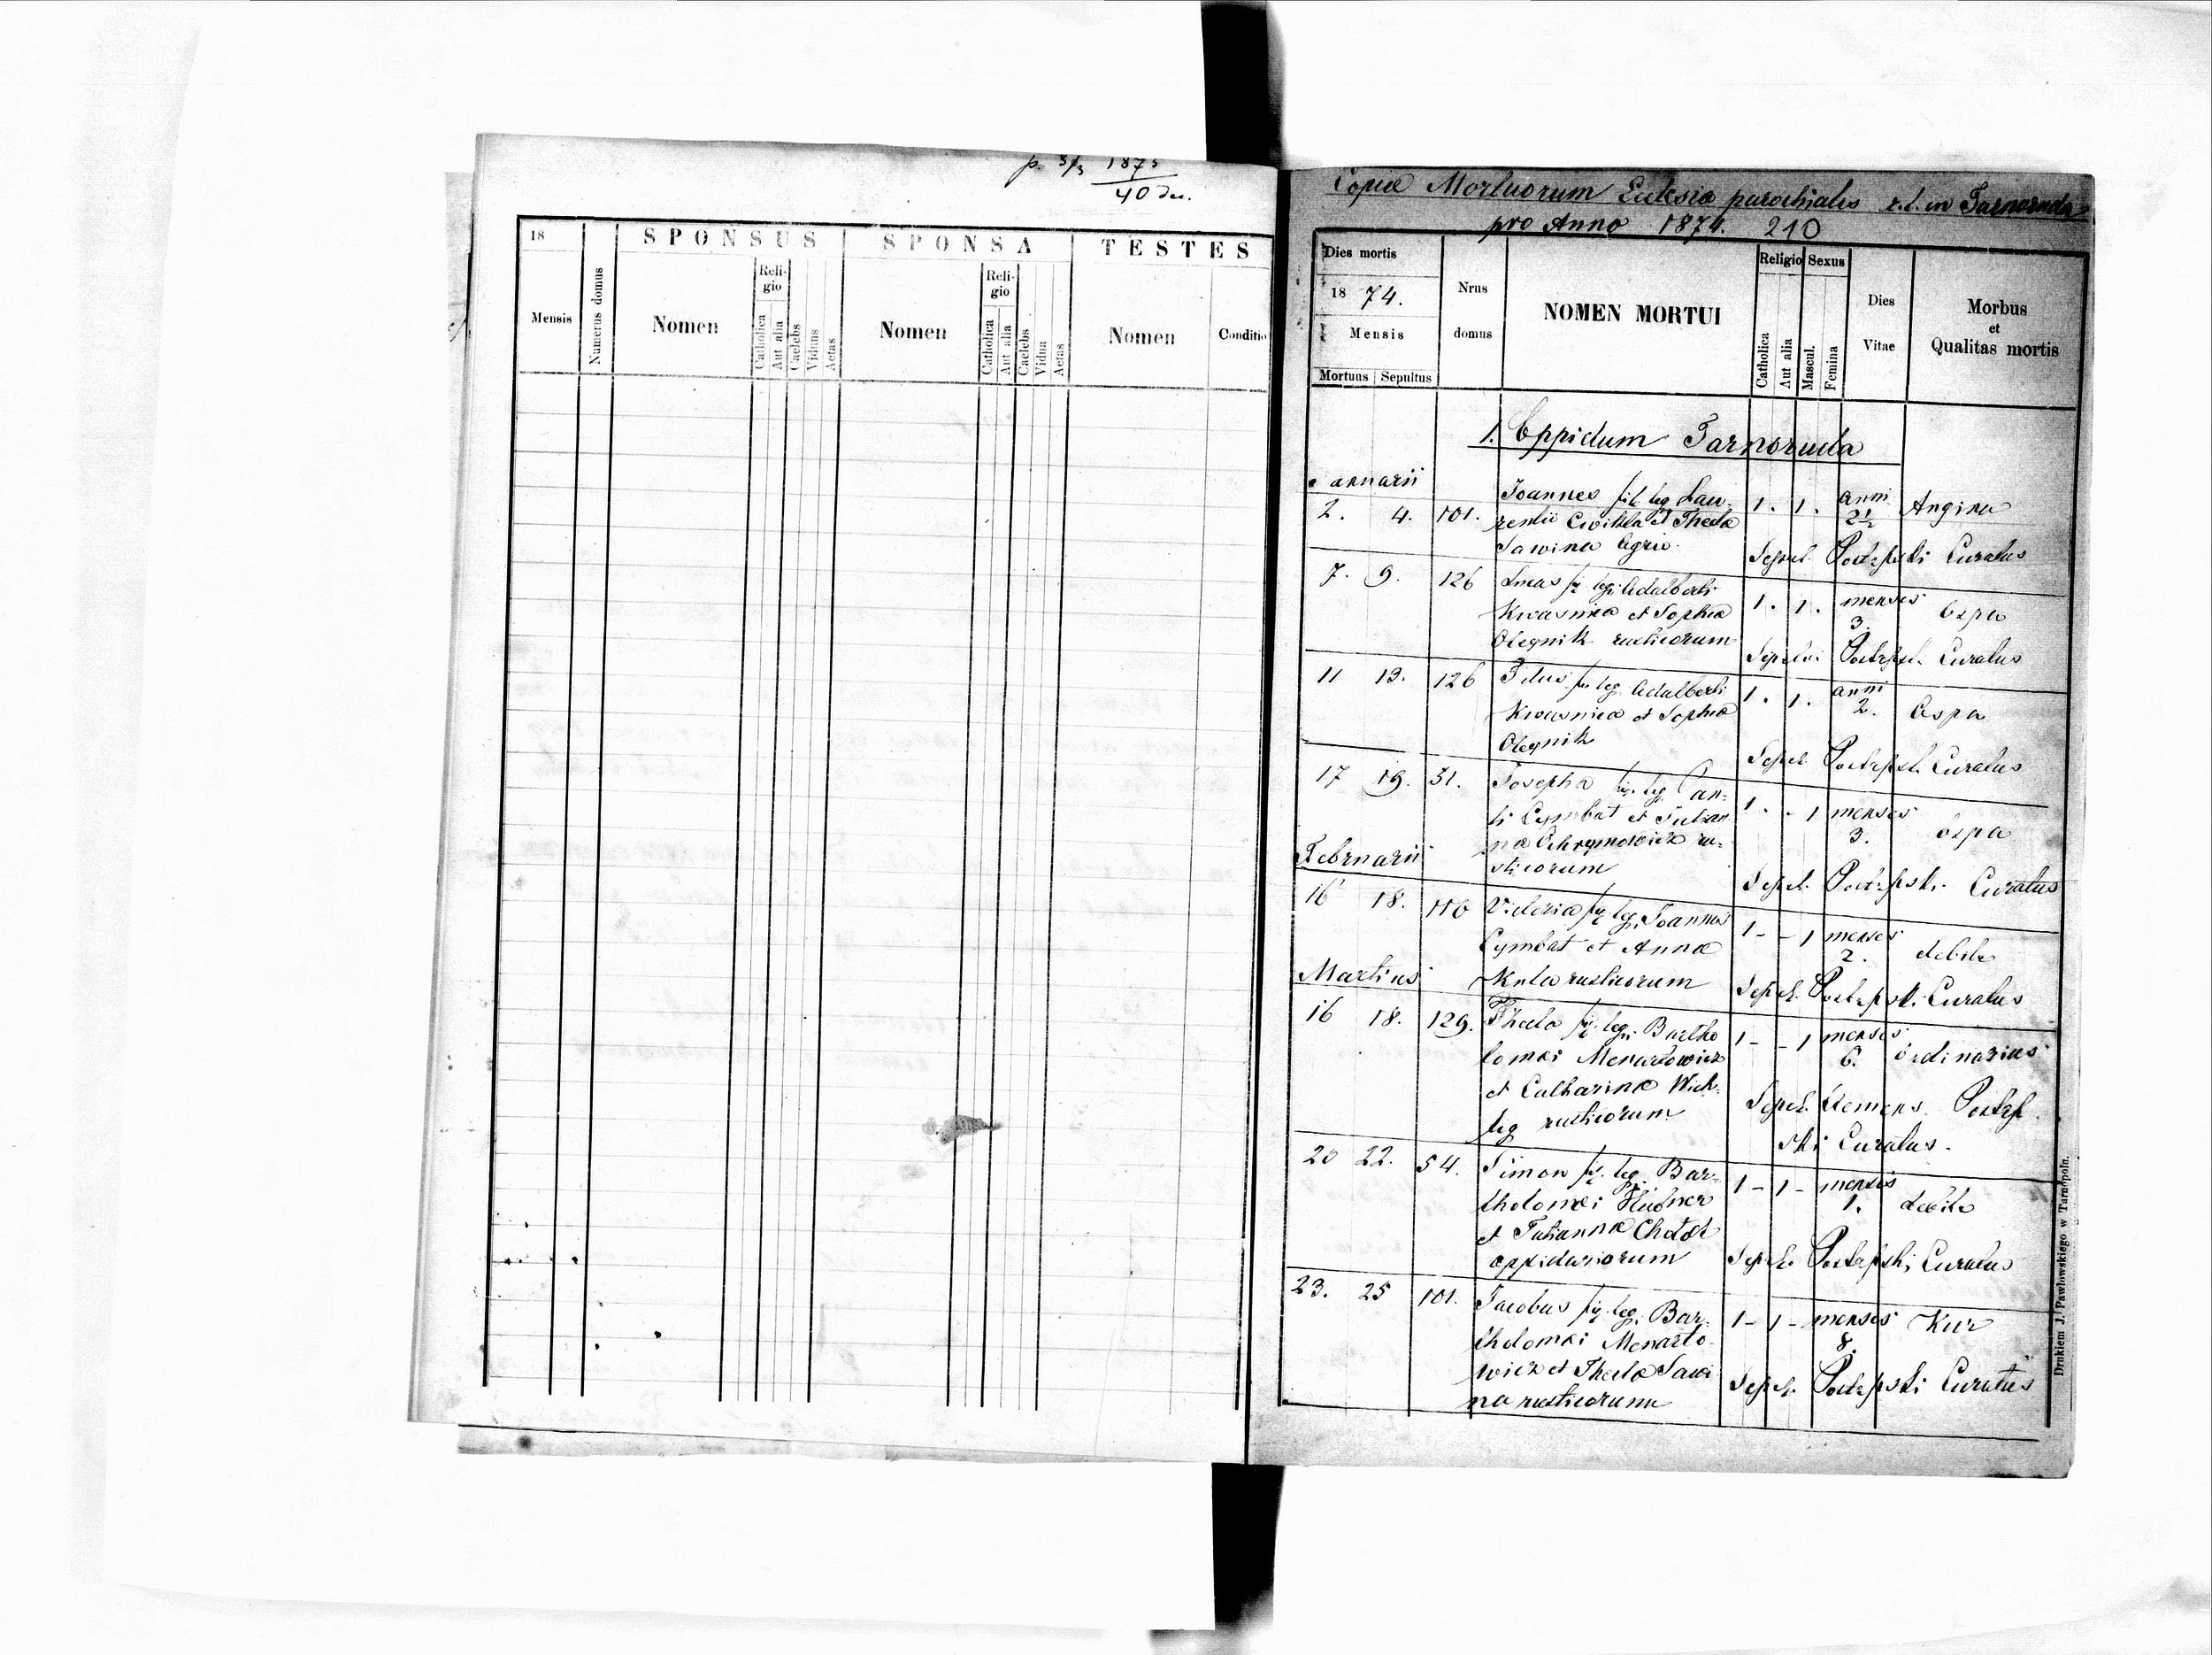 1875
40
18
SPONSUS SPONSA TESTES
Mensis Numerus domus Nomen Religio Catholica Aut alia Caelebs Viduus Aetas Nomen Religio Catholica Aut alia Caelebs Vidua Aetas Nomen Conditio
Copia Mortuorum Eclesia parochialis r.l. in Tarnoruda
pro Anno 1874. 210
Dies mortis
1874.
Mensis
Mortuus Sepultus
Nrus domus
NOMEN MORTUI
Religio Sexus
Catholica Aut alia Mascul. Femina
Dies Vitae
Morbus et Qualitas mortis
1. Oppidum Tarnoruda
Januarii
2. 4. 101. Joannes fil. leg. Lau- 1. 1. anni 2½ Angina
rentii et Thecla
Sawina Agric. Sepel. Curatus
7. 9. 126 fil. leg. Adalberti 1. 1. menses 3. Ospa
Kwasnica et Sophia
Olegnik rusticorum Curatus
11 13. 126 fil. leg. Adalberti 1. 1. anni 2. Ospa
Kwasnica et Sophia
Olegnik Sepel. Curatus
17 19. 31. Josepha fil. leg. Pau- 1. - 1 menses 3. Ospa
li Cymbat et Julian
na rusticorum Sepel. Curatus
Februarii
16 18. 110 Victoria fil. leg. Joannis 1 - - 1 menses 2. debile
Cymbat et Anna
rusticorum Sepel. Curatus
Martius
16 18. 129. Thecla fil. leg. Bartho 1 - - 1 menses 6. ordinarius
lomei Menartowicz
et Catharina
rusticorum Sepel. Clemens
Curatus.
20 22. 54. Simon fil. leg. Bar- 1 - 1 - mensis 1. debile
tholomei Hübner
et Tatianna
oppidanorum Sepel. Curatus
23. 25 101. Jacobus fil. leg. Bar- 1 - 1 - menses 8. Kur
tholomei Menarto-
wicz et Thecla Sawi
na rusticorum Sepel. Curatus
Drukiem J. Pawłowskiego w Tarnopolu.